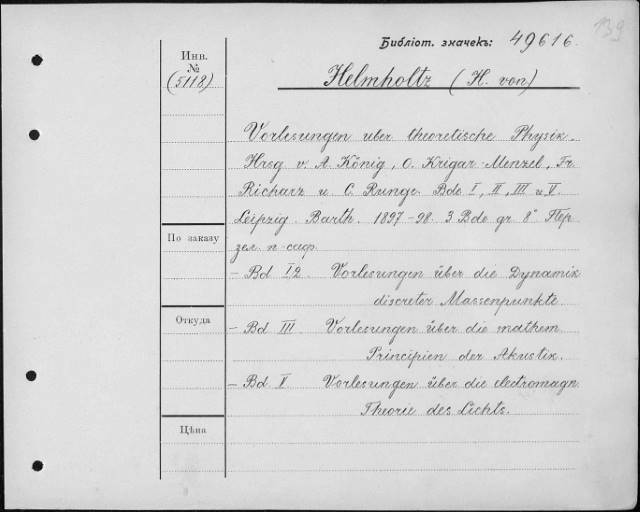 139
Библіот. значекъ: 49616.
Инв.
№
(5118)
Helmholtz (H. von)
Vorlesungen uber theoretische Physik.
Hrsg v. A. König, O. Krigar-Menzel, Fr.
Richarz u C. Runge. Bde I, II, III u V.
Leipzig. Barth. 1897-98. 3 Bde gr 8° Пер
По заказу
- Bd I,2. Vorlesungen über die Dynamik
discreter Massenpunkte.
Откуда
- Bd III Vorlesungen über die mathem.
Principien der Akustik.
- Bd V Vorlesungen über die electromagn.
Theorie des Lichts.
Цѣна